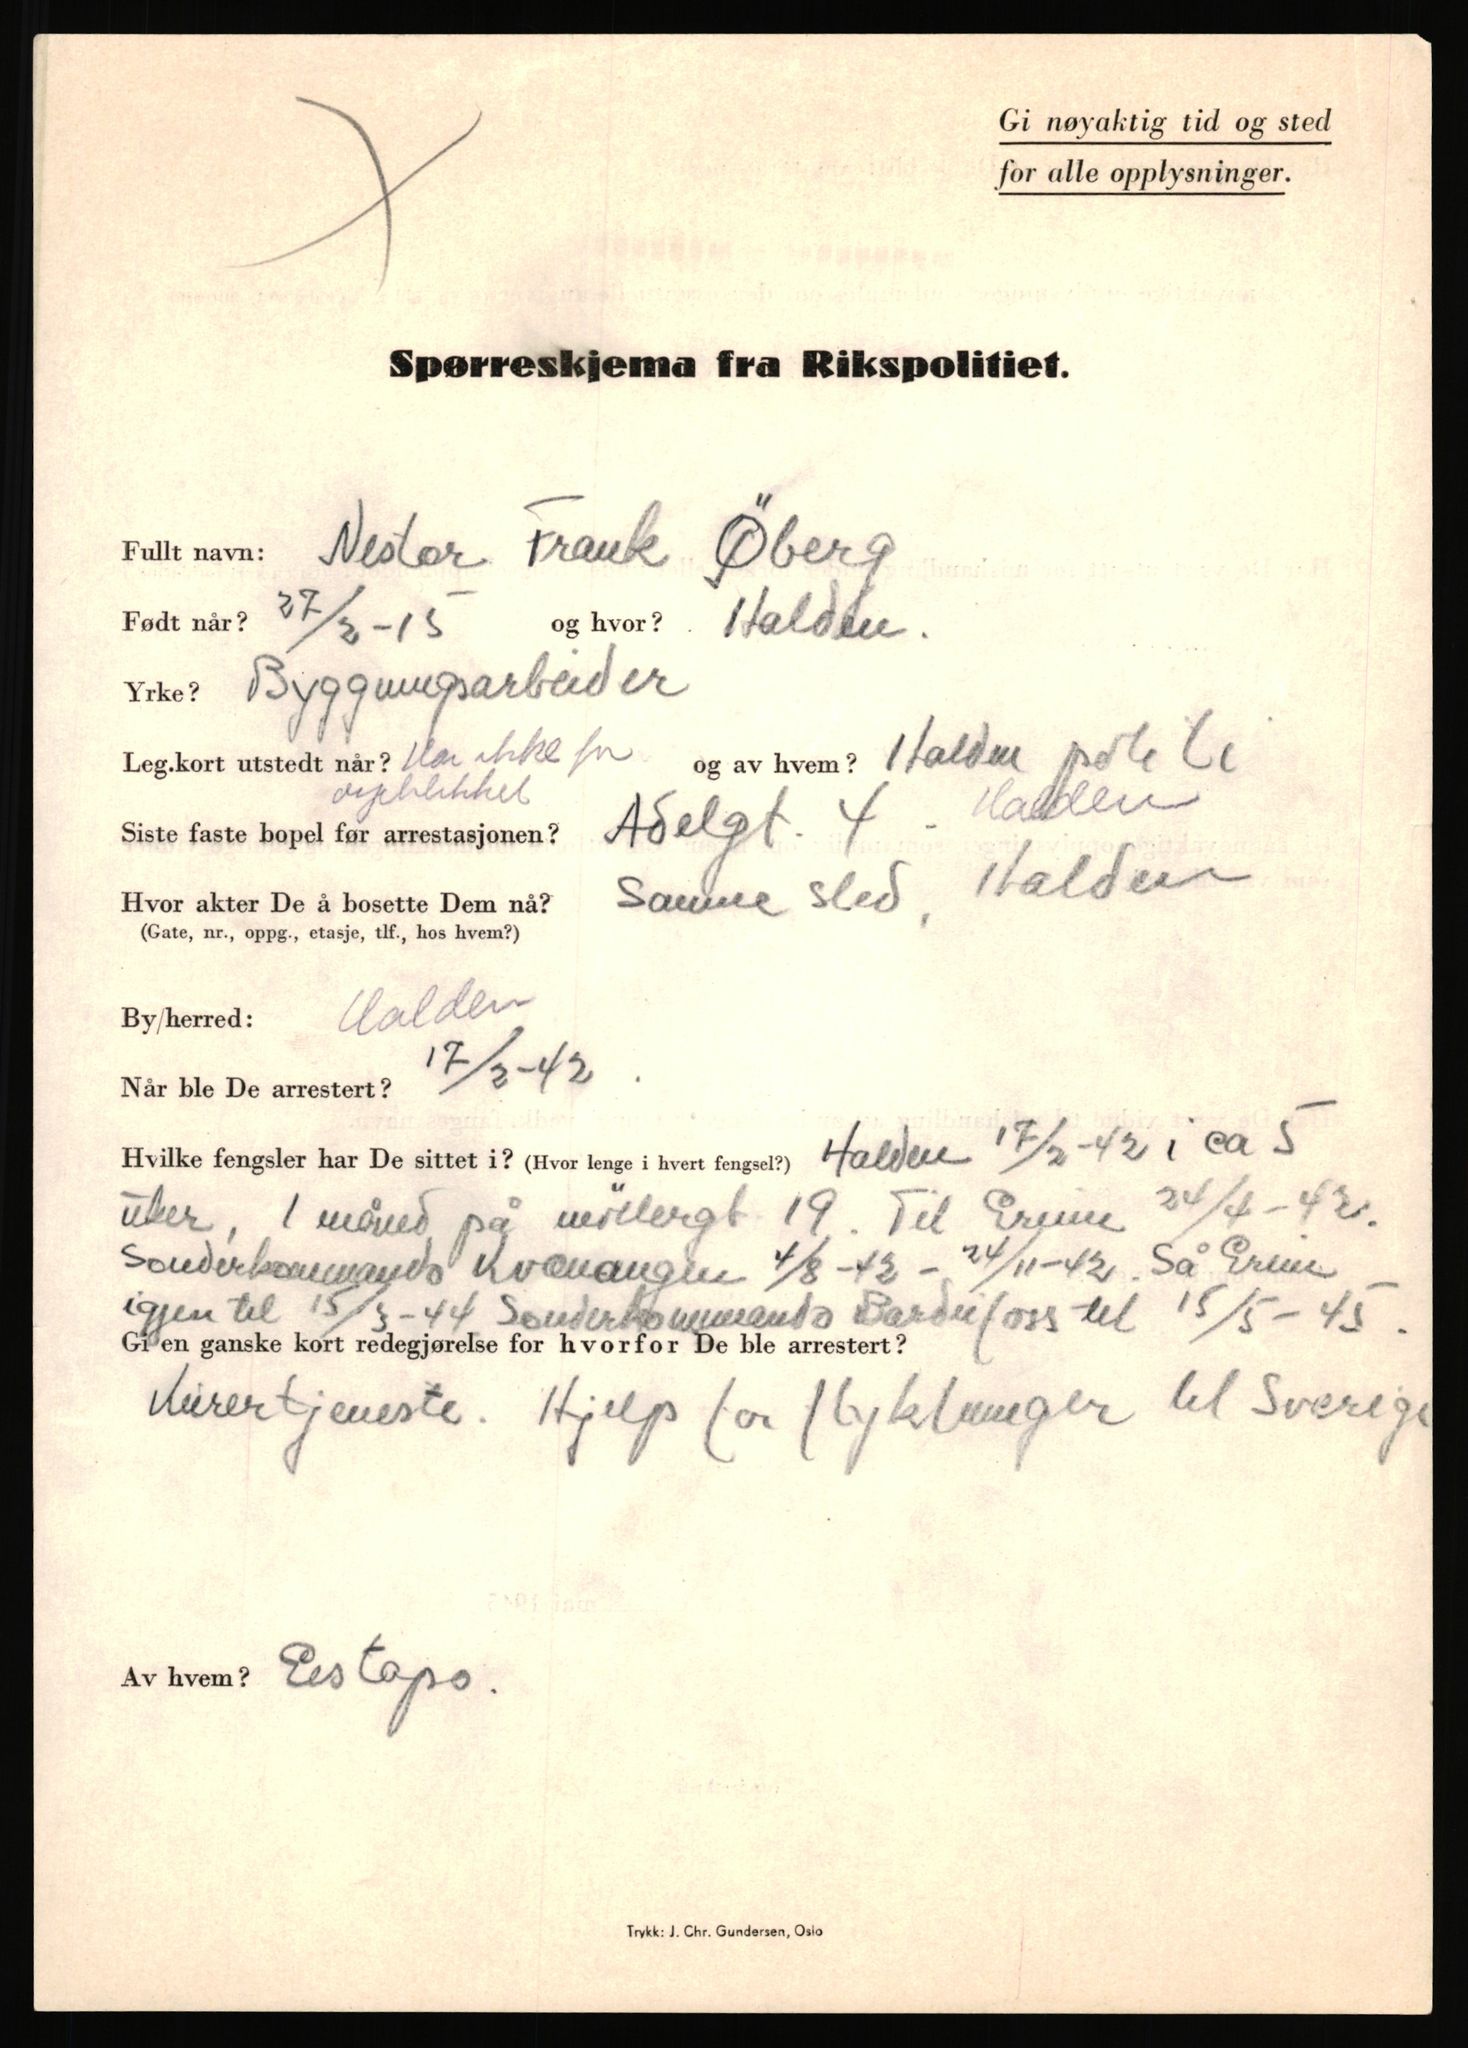 Gi nøyaktig tid og sted
for alle opplysninger.
Spørreskjema fra Rikspolitiet.
Fullt navn: Nestor Frank Øberg
Født når? 27/2-15 og hvor? Halden.
Yrke? Byggningsarbeider
Leg.kort utstedt når? Har ikke for og av hvem? Halden politi
øyeblikket
Siste faste bopel før arrestasjonen? Adelgt. 4 - Halden
Hvor akter De å bosette Dem nå? Samme sted, Halden
(Gate, nr., oppg., etasje, tlf., hos hvem?)
By/herred: Halden
Når ble De arrestert? 17/2-42.
Hvilke fengsler har De sittet i? (Hvor lenge i hvert fengsel?) Halden 17/2-42 i ca 5
uker, 1 måned på möllergt 19. Til Grini 24/4-42.
Sonderkommando Kvænangen 4/8-42 - 24/11-42. Så Grini
igjen til 15/3-44 Sonderkommando Bardufoss til 15/5-45.
Gi en ganske kort redegjørelse for hvorfor De ble arrestert?
Kurertjeneste. Hjelp for flyktninger til Sverige
Av hvem? Gestapo.
Trykk: J. Chr. Gundersen, Oslo